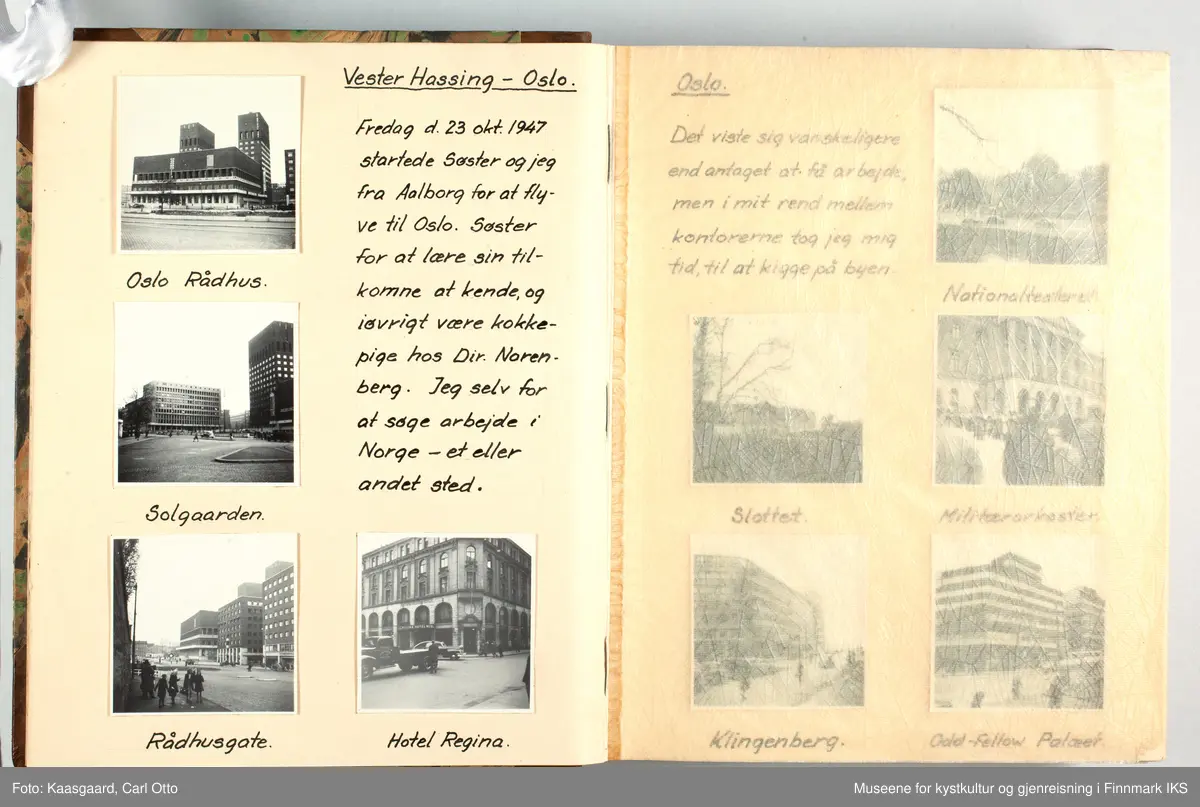 Vester Hassing – Oslo.
Fredag d. 23 okt. 1947
startede Søster og jeg
fra Aalborg for at fly-
ve til Oslo. Søster
for at lære sin til-
komne at kende, og
iøvrigt være kokke-
pige hos Dir. Noren-
berg. Jeg selv for
at søge arbejde i
Norge – et eller
andet sted.
Oslo Rådhus.
Solgaarden.
Rådhusgate.
Hotel Regina.
Oslo.
Det viste sig vanskeligere
end antaget at få arbejde,
men i mit rend mellem
kontorerne tog jeg mig
tid, til at kigge på byen.
Nationalteatret.
Slottet.
Militærorkester.
Klingenberg.
Odd-Fellow Palæet.
Foto: Kaasgaard, Carl Otto
Museene for kystkultur og gjenreisning i Finnmark IKS